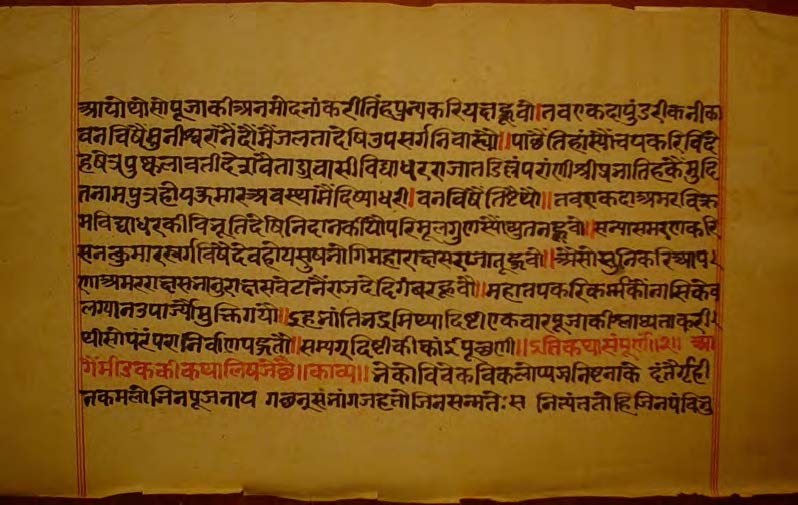 आयो थो सो पूजा की अनमोदनां करी तिंह पुन्य करि यक्ष हूवो। तव एकदा पुंडरीकनी का
वन विषै मुनीश्वरांनै दौंमैं जलता देषि उपसर्ग निवास्यो॥ पाछै तिहांस्यों चय करि विदे
ह षेत्र पुष्कलावती देश वैताढ्यवासी विद्याधर राजा तडिल्लंप रांणी श्रीषना तिहंकै मुदि
त नाम पुत्र होय कुमार अवस्थामैं दिष्या धरी। वन विषै तिष्टै थो॥ तव एकदा अमर विक्र
म विद्याधर की विभूति देषि निदान कीयो परि मूल गुणस्यों च्युत न हूवो॥ सन्यास मरण करि
सनत्कुमार स्वर्ग विषै देव होय सुष भोगि महाराक्षस राजा तू हूवो॥ असो सुनि करि आप
णा अमर राक्षस भानु राक्षस वेटानैं राज दे दिगंबर हूवो॥ महा तप करि कर्मको नासि केव
लग्यान उपार्ज्यो मुक्ति गयो॥ इह भांति नइ मिथ्यादिष्टी एक वार पूजा की श्लाघ्यता करी।
थी सो परंपरा निर्वाण पहूतो॥ सम्यग्दिष्टी की कांइ पूछणी॥ इति कथा संपूर्ण॥२॥ आ
गैं मीडक की कथा लिषजे छै॥काव्य॥ भेको विवेक विकलोप्यजनिष्ट नाके दंतैर्गृही
त कमलो जिन पूजनाय गछन् सभां गज हतो जिन सन्मतेः स नित्यं ततो हि जिनपं विभु